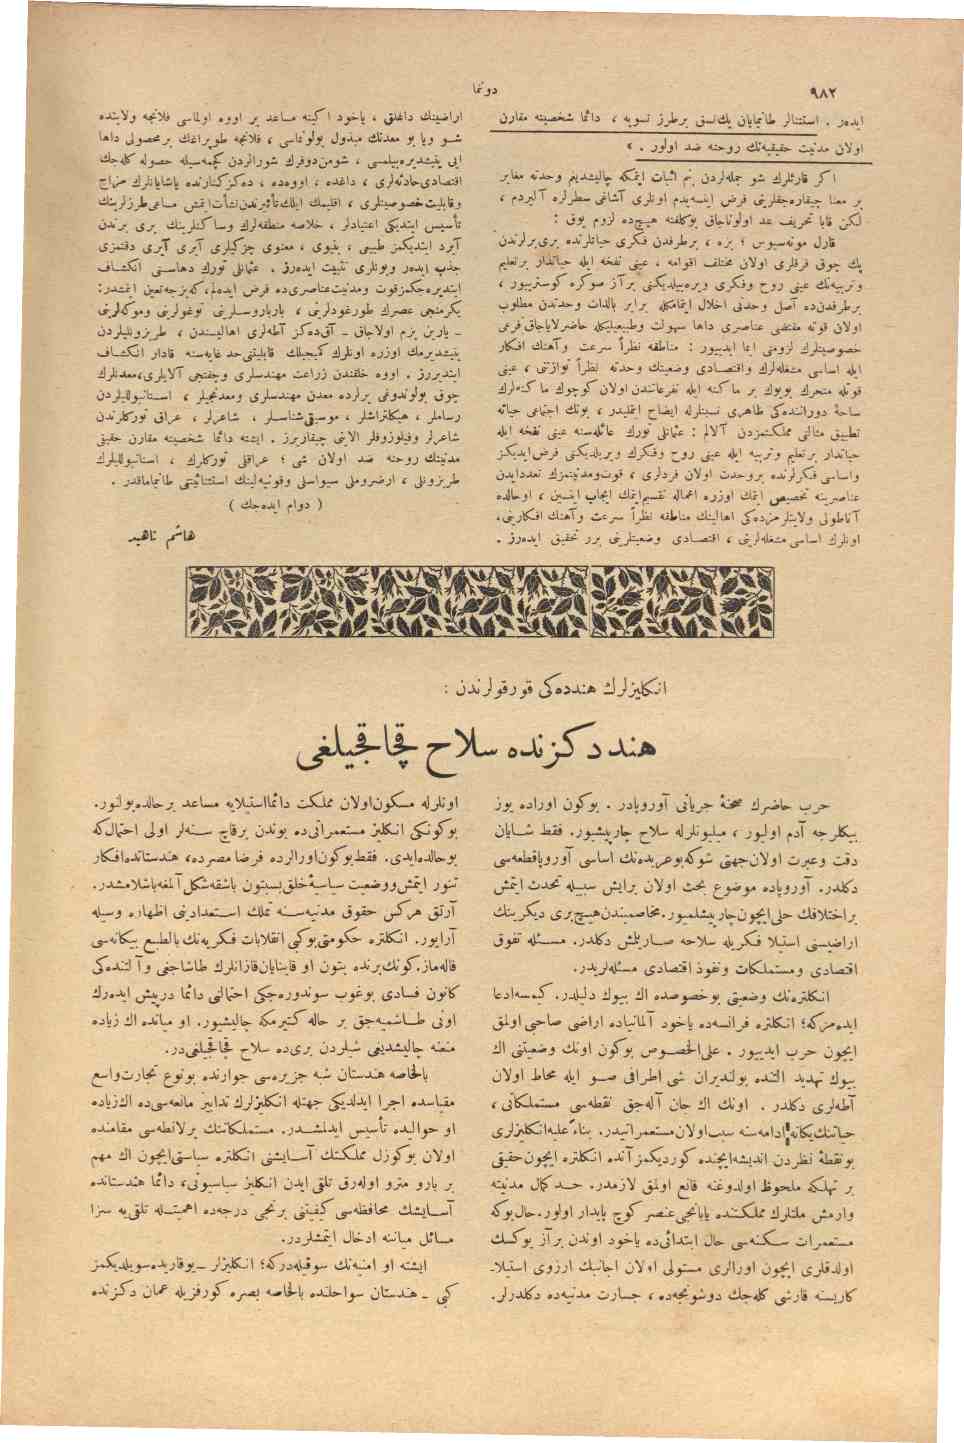 ٩٨٢
دونما
ایده‌ر . استثنالر طانیمایان یك‌نسق برطرز تسویه ، دائما شخصیته مقارن
اولان مدنیت حقیقیه‌نك روحنه ضد اولور . »
اكر قارئلرك شو جمله‌لردن بنم اثبات ایتمكه چالیشدیغم وحدته مغایر
بر معنا چیقاره‌جقلرینی فرض ایتسه‌یدم اونلری آشاغی سطرلره آلیردم ،
لكن قابا تحریف عد اولوناجاق بوكلفته هیچ‌ده لزوم یوق :
قارل موته‌سیوس ؛ بزه ، برطرفدن فكری حیاتلرنده بری‌برلرندن
پك چوق فرقلری اولان مختلف اقوامه ، عینی نفخه ایله حیاتدار برتعلیم
وتربیه‌نك عینی روح وفكری ویره‌بیله‌دیكنی بر آز سوكره كوستریور ،
برطرفدن‌ده آصل وحدتی اخلال ایتمامكله برابر بالذات وحدتدن مطلوب
اولان قوته مقتضی عناصری داها سهولت وطبیعیلكله حاضرلایاجاق فرعی
خصوصیتلرك لزومنی ایما ایدییور : مناطقه نظراً سرعت وآهنك افكار
ایله اساسی مشغله‌لرك واقتصادی وضعیتك وحدته نظراً توازنی ، عینی
قوتله متحرك بویوك بر ماكنه ایله تفرعاتندن اولان كوچوك ماكنه‌لرك
ساحهٔ دوراننده‌كی ظاهری نسبتلرله ایضاح ایتملیدر ، بونك اجتماعی حیاته
تطبیق مثالنی مملكتمزدن آلالم : عثمانلی تورك عائله‌سنه عینی نفخه ایله
حیاتدار برتعلیم وتربیه ایله عینی روح وفكرك ویریلدیكنی فرض‌ایدیكز
واساسی فكرلرنده بروحدت اولان فردلری ، قوت‌ومدنیتمزك تعددایدن
عناصرینه تخصیص ایتمك اوزره اعماله تقسیم‌ایتمك ایجاب ایتسین ، اوحالده
آناطولی ولایتلرمزده‌كی اهالینك مناطقه نظراً سرعت وآهنك افكارینی،
اونلرك اساسی مشغله‌لرینی ، اقتصادی وضعیتلرینی برر تحقیق ایده‌رز .
اراضینك داغلق ، یاخود اكینه مساعد بر اووه اولماسی فلانجه ولایتده
شو ویا بو معدنك مبذول بولونماسی ، فلانجه طوپراغك برمحصولی داها
ایی یتیشدیره‌بیلمسی ، شومن‌دوفرك شورالردن كچمه‌سیله حصوله كله‌جك
اقتصادی‌حادثه‌لری ، داغده ، اووه‌ده ، ده‌كزكنارنده یاشایانلرك مزاج
وقابلیت‌خصوصیتلری ، اقلیمك ایلك‌تأثیرندن‌نشأت‌ایتمش مساعی‌طرزلرینك
تأسیس ایتدیكی اعتیادلر ، خلاصه منطقه‌لرك وساكنلرینك بری برندن
آیرد ایتدیكمز طبیعی ، بنیوی ، معنوی چزكیلری آیری آیری دقتمزی
جذب ایده‌ر وبونلری تثبیت ایده‌رز . عثمانلی تورك دهاسنی انكشاف
ایتدیره‌جكمزقوت ومدنیت‌عناصری‌ده فرض ایده‌لم،كه‌بزجه‌تعین ایتمشدر:
یكرمنجی عصرك طورغودلرینی ، بارباروسلرینی توغولرینی وموكه‌لرینی
ـ یارین بزم اولاجاق ـ آق‌ده‌كز آطه‌لری اهالیسندن ، طربزونلیلردن
یتیشدیرمك اوزره اونلرك كمیجیلك قابلیتنی‌حد غایه‌سنه قادار انكشاف
ایتدیررز . اووه خلقندن زراعت مهندسلری وچفتجی آلایلری،معدنلرك
چوق بولوندوغی یرلرده معدن مهندسلری ومعدنجیلر ، استانبوللیلردن
رساملر ، هیكلتراشلر ، موسیقی‌شناسلر ، شاعرلر ، عراق توركلرندن
شاعرلر وفیلوزوفلر الابنی چیقاریرز . ایشته دائما شخصیته مقارن حقیقی
مدنیتك روحنه ضد اولان شی ؛ عراقلی توركلرك ، استانبوللیلرك
طربزونلی ، ارضروملی سیواسلی وقونیه‌لینك استثنائیتنی طانیماماقدر .
( دوام ایده‌جك )
هاشم ناهید
انكلیزلرك هندده‌كی قورقولرندن :
هند دكزنده سلاح قچاقجیلغی
حرب حاضرك صحنهٔ جریانی آوروپادر . بوكون اوراده یوز
بیكلرجه آدم اولیور ، میلیونلرله سلاح چارپیشیور. فقط شایان
دقت وعبرت اولان‌جهتی شوكه‌بوعربده‌نك اساسی آوروپاقطعه‌سی
دكلدر. آوروپاده موضوع بحث اولان برایش سببیله تحدث ایتمش
براختلافك حلی‌ایچون‌چارپیشلمیور.مخاصمیندن‌هیچ‌بری دیكرینك
اراضیسنی استیلا فكریله سلاحه صاریلمش دكلدر. مسئله تفوق
اقتصادی ومستملكات ونفوذ اقتصادی مسئله‌لریدر.
انكلتره‌نك وضعیتی بوخصوصده اك بیوك دلیلدر. كیمسه‌ادعا
ایده‌مزكه؛ انكلتره فرانسه‌ده یاخود آلمانیاده اراضی صاحبی اولمق
ایچون حرب ایدییور . علی‌الخصوص بوكون اونك وضعیتنی اك
بیوك تهدید التنده بولندیران شی اطرافی صو ایله محاط اولان
آطه‌لری دكلدر . اونك اك جان آله‌جق نقطه‌سی مستملكاتی ،
حیاتنك‌یكانه ادامه‌سنه سبب‌اولان‌مستعمراتیدر. بناءًعلیه‌انكلیزلری
بونقطهٔ نظردن اندیشه‌ایچنده كوردیكمز آنده انكلتره ایچون‌حقیقی
بر تهلكه ملحوظ اولدوغنه قانع اولمق لازمدر. حد كمال مدنیته
وارمش ملتلرك مملكتنده یابانجی‌عنصر كوچ پایدار اولور.حال‌بوكه
مستعمرات سكنه‌سی حال ابتدائی‌ده یاخود اوندن برآز یوكسك
اولدقلری ایچون اورالری مستولی اولان اجانبك ارزوی استیلا-
كاریسنه قارشی كله‌جك دوشونجه‌ده ، جسارت مدنیه‌ده دكلدرلر.
اونلرله مسكون‌اولان مملكت دائمااستیلایه مساعد برحالده‌بولنور.
بوكونكی انكلیز مستعمراتی‌ده بوندن برقاچ سنه‌لر اولی احتمال‌كه
بوحالده‌ایدی. فقط‌بوكون‌اورالرده فرضا مصرده، هندستانده‌افكار
تنور ایتمش‌ووضعیت سیاسیهٔ‌خلق‌بسبتون باشقه‌شكل‌آلمغه‌باشلامشدر.
آرتق هركس حقوق مدنیه‌سنه تملك استعدادینی اظهاره وسیله
آرایور. انكلتره حكومتی‌بوكبی انقلابات فكریه‌نك بالطبع بیكانه‌سی
قاله‌ماز.كونك‌برنده بتون او قاینایان‌قازانلرك طاشاجغی وآلتنده‌كی
كانون فسادی بوغوب سوندوره‌جكی احتمالنی دائما درپیش ایده‌رك
اونی طاشمیه‌جق بر حاله كتیرمكه چالیشیور. او میانده اك زیاده
منعنه چالیشدیغی شیلردن بری‌ده سلاح قچاقجیلغی‌در.
بالخاصه هندستان شبه جزیره‌سی جوارنده بونوع تجارت‌واسع
مقیاسده اجرا ایدلدیكی جهتله انكلیزلرك تدابیر مانعه‌سی‌ده اك‌زیاده
او حوالیده تأسیس ایدلمشدر. مستملكاتنك پرلانطه‌سی مقامنده
اولان بوكوزل مملكتك آسایشنی انكلتره سیاستی‌ایچون اك مهم
بر بارو مترو اوله‌رق تلقی ایدن انكلیز سیاسیونی، دائما هندستانده
آسایشك محافظه‌سی كیفیتنی برنجی درجه‌ده اهمیتله تلقی‌یه سزا
مسائل میاننه ادخال ایتمشلردر.
ایشته او امنیه‌نك سوقیله‌دركه؛ انكلیزلر ـ‌یوقاریده‌سویلدیكمز
كبی ـ هندستان سواحلنده بالخاصه بصره كورفزیله عمان دكزنده